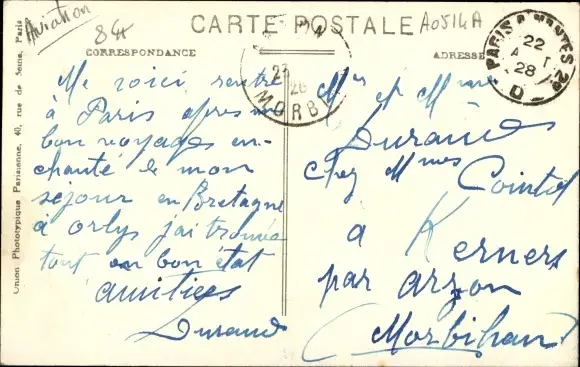 Aviation
CARTE POSTALE
A0514A
CORRESPONDANCE
ADRESSE
PARIS A NANTES
22
28
D
23
MORB
Union Phototypique Parisienne, 40, rue de Seine, Paris
Me voici rentré
à Paris après un
bon voyage, en-
chanté de mon
séjour en Bretagne
à orlys j'ai trouvé
tout en bon état
amitiées
Durand
Mrs et Mme
Durand
chez Mmes
à Kerners
par arzon
(Morbihan)